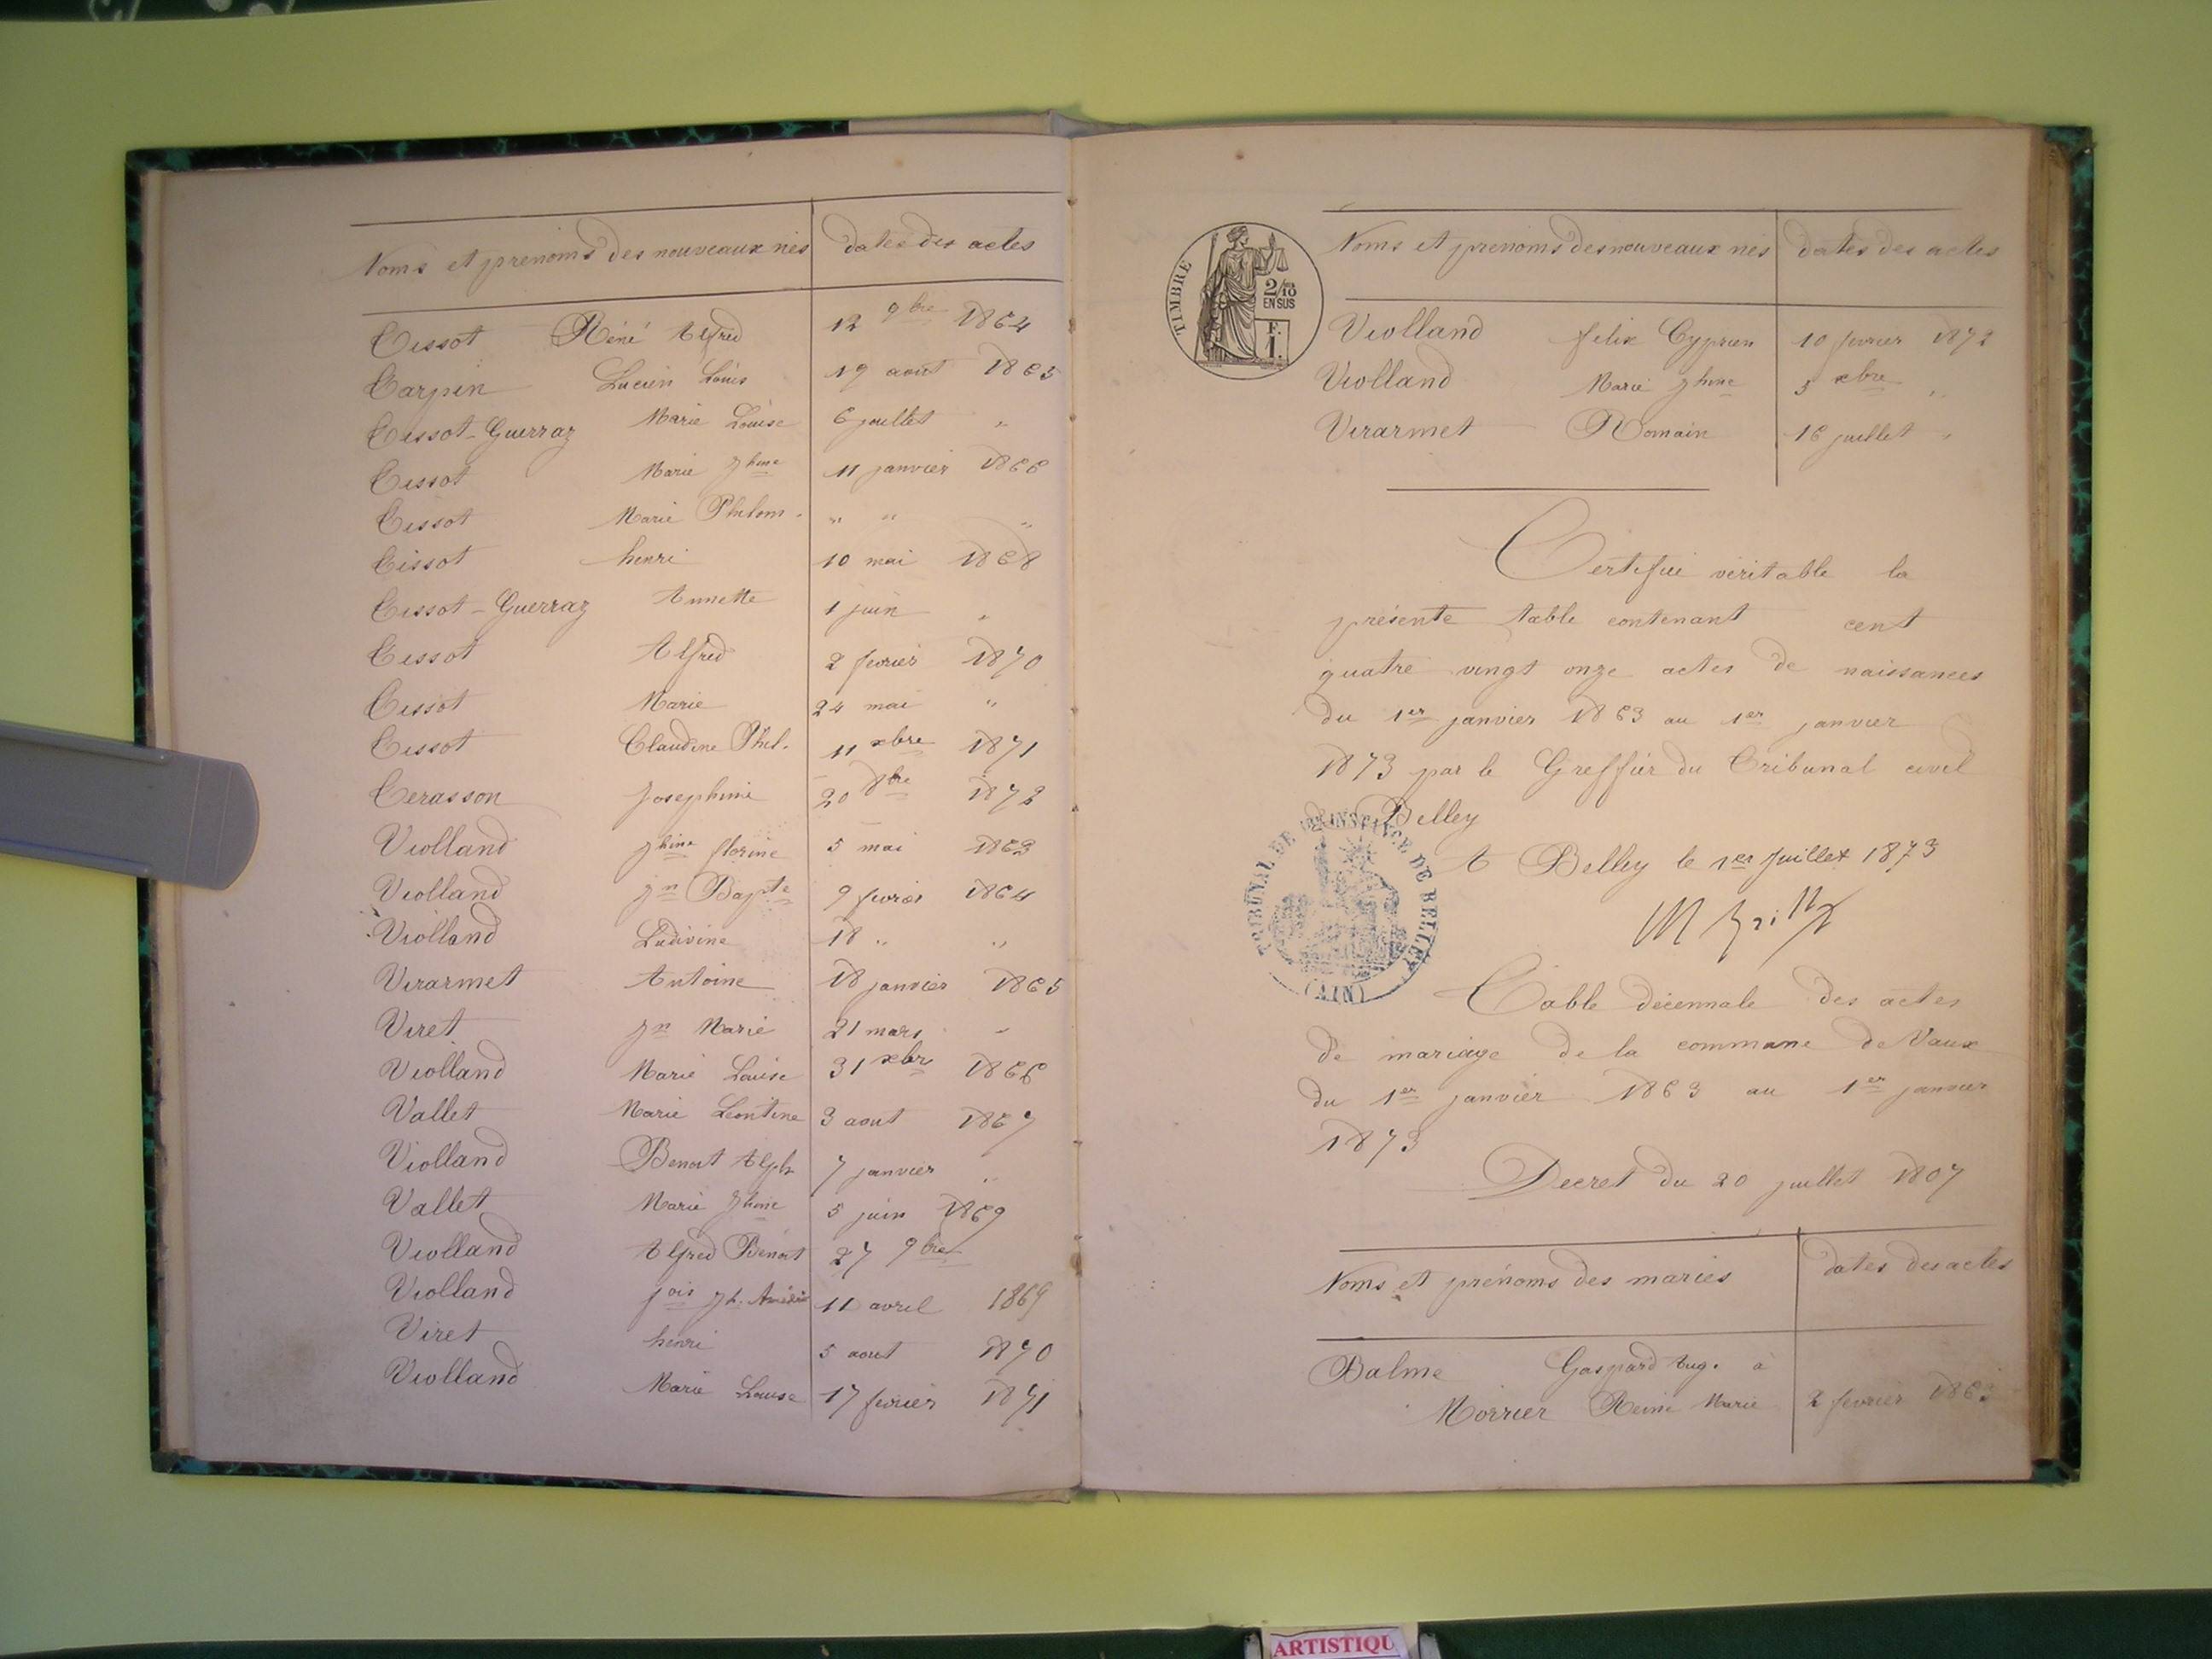 Noms et prénoms des nouveaux nés dates des actes
Tissot Réné Alfred 12 9bre 1864
Tarpin Lucien Louis 19 aout 1865
Tissot-Guerraz Marie Louise 6 juillet "
Tissot Marie Jhine 11 janvier 1866
Tissot Marie Philom. " " "
Tissot henri 10 mai 1868
Tissot-Guerraz Annette 1 juin "
Tissot Alfred 2 fevrier 1870
Tissot Marie 24 mai "
Tissot Claudine Phil. 11 xbre 1871
Terasson Josephine 20 8bre 1872
Violland Jhine florine 5 mai 1863
Violland Jn Bapte 9 fevrier 1864
Violland Ludivine 18 " "
Virarmet Antoine 18 janvier 1865
Viret Jn Marie 21 mars "
Violland Marie Louise 31 xbre 1866
Vallet Marie Leontine 3 aout 1867
Violland Benoit Alph 7 janvier "
Vallet Marie Jhine 5 juin 1869
Violland Alfred Benoit 27 9bre
Violland fois Jh. 11 avril 1869
Viret henri 5 aout 1870
Violland Marie Louise 17 fevrier 1871
TIMBRE
2/10 EN SUS
F. 1.
Noms et prenoms des nouveaux nés dates des actes
Violland felix Cyprien 10 fevrier 1872
Violland Marie Jhine 5 xbre "
Virarmet Romain 16 juillet "
Certifié véritable la
présente table contenant cent
quatre vingt onze actes de naissances
du 1er janvier 1863 au 1er janvier
1873 par le Greffier du Tribunal civil
Belley
A Belley le 1er juillet 1873
TRIBUNAL DE 1ERE INSTANCE DE BELLEY
(AIN)
Table décennale des actes
de mariage de la commune de Vaux
du 1er janvier 1863 au 1er janvier
1873
Decret du 20 juillet 1807
Noms et prénoms des mariés dates des actes
Balme Gaspard Aug. à
Morrier Reine Marie 2 fevrier
ARTISTIQU